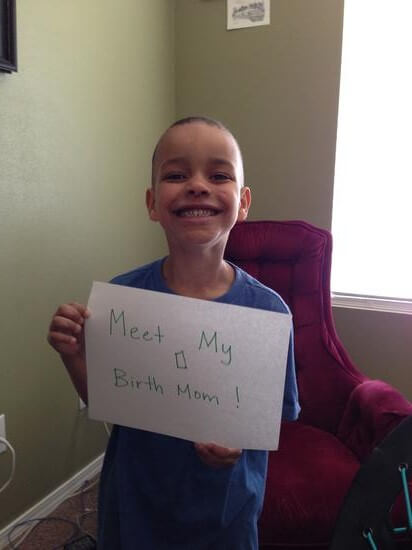 Meet My
Birth Mom !